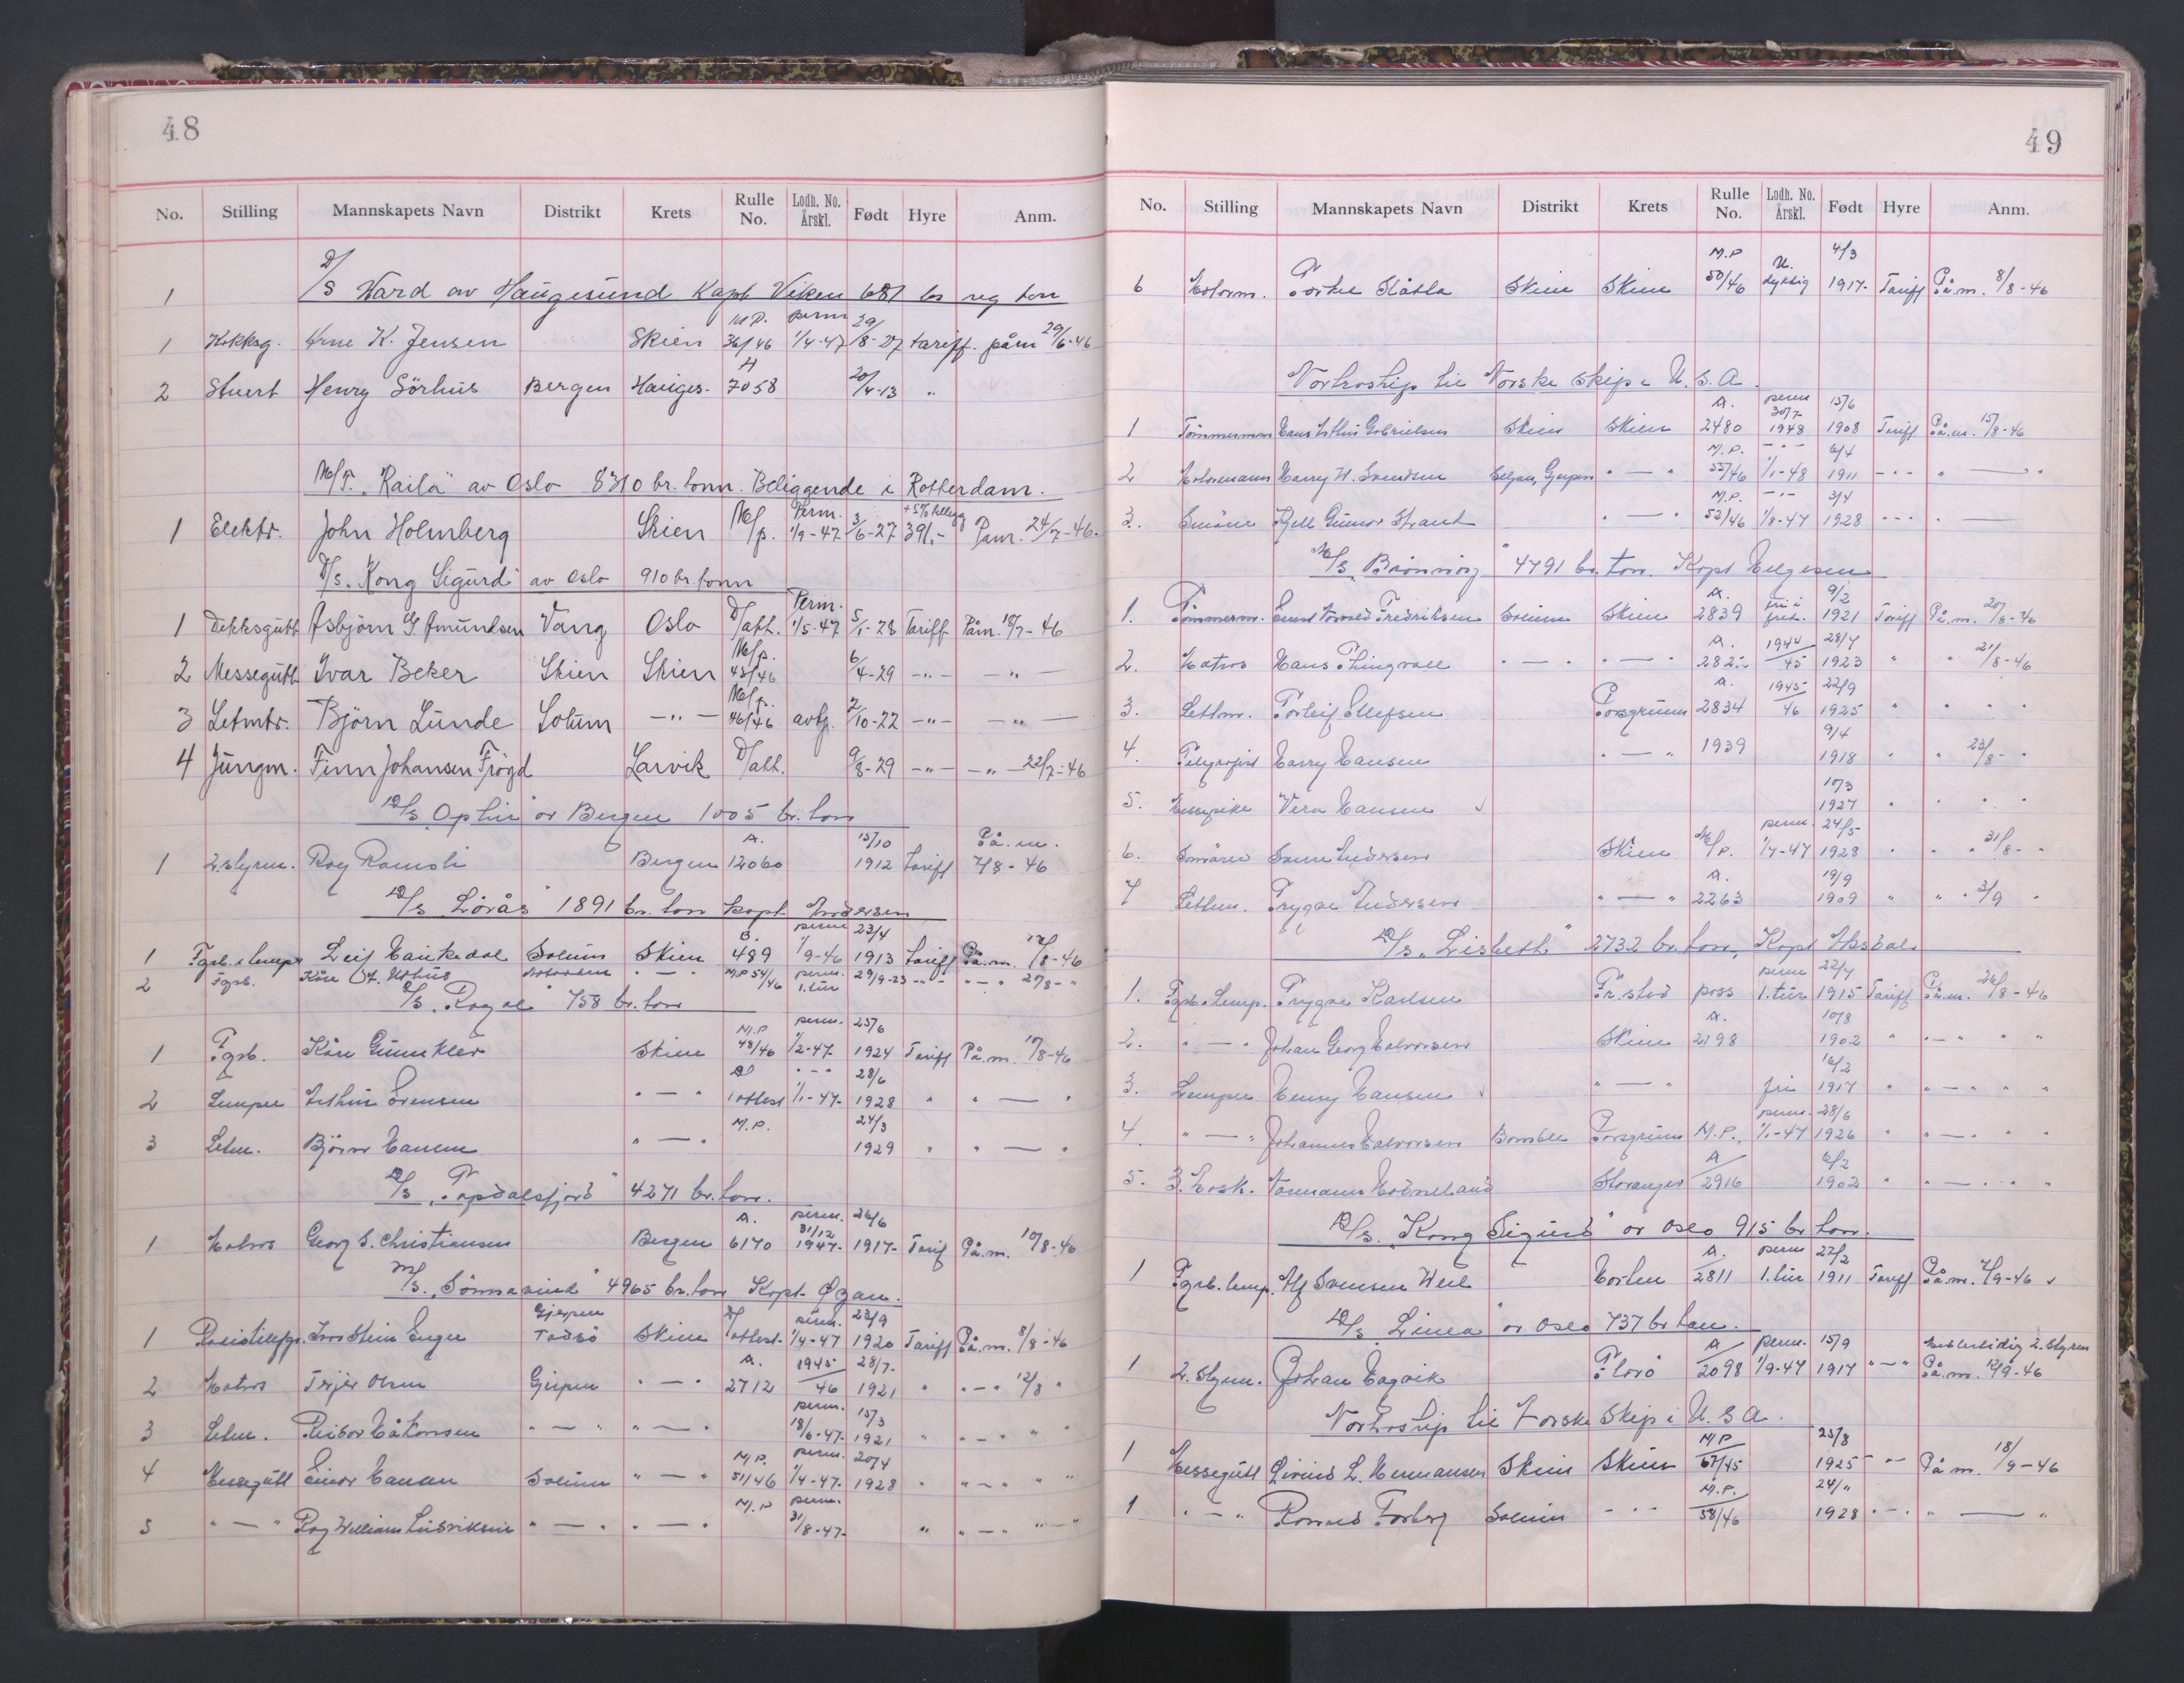 48
No. Stilling Mannskapets Navn Distrikt Krets Rulle No. Lodh. No. Årskl. Født Hyre Anm.
1 D/S Vard av Haugesund Kapt Viken 681 br reg ton
1 Kokkeg. Arne K. Jensen Skien M.P. 36/46 perm 1/4-47 29/8-27 tariff påm 29/6-46
2 Stuert Henry Sörhus Bergen Hauges. A 7058 20/4-13 "
M/T. "Kaila" av Oslo 8310 br. tonn. Beliggende i Rotterdam.
1 Elektr. John Holmberg Skien M/p. Perm. 1/9-47 3/6-27 391,- + 5% tillegg Påm. 24/7-46.
D/S. "Kong Sigurd" av Oslo 910 br. tonn
1 Dekksgutt Asbjörn G Amundsen Vang Oslo D/att. Perm. 1/5-47 5/1-28 Tariff Påm. 18/7-46
2 Messegutt Ivar Beker Skien Skien M/p. 45/46 6/4-29 -"- -"-
3 Letmtr. Björn Lunde Solum -"- M/p. 46/46 avtj. 2/10-22 -"- -"-
4 Jungm. Finn Johansen Frögd Larvik D/att. 9/8-29 -"- -"- 22/7-46
D/S "Ophir" av Bergen 1005 br. tonn
1 2. styrm. Roy Ramsli Bergen A. 12060 15/10 1912 tariff På.m. 7/8-46
D/S Lörås" 1891 br. tonn kapt. Andersen
1 Fyrb. Lemper Leif Haukedal Solum Skien B. 489 perm 1/9-46 23/4 1913 tariff På.m. 12/8-46
2 Fyrb. Kåre " - " M.P 54/46 perm. 1. tur 29/9-23 " - " " - " 27/8- "
D/S. "Rogal" 758 br. tonn
1 Fyrb. Kåre Gunnkler Skien M.P 48/46 perm. 1/2-47 25/6 1924 Tariff På.m. 10/8-46
2 Lemper Arthur Sörensen " - " D/attest 1/1-47- 28/6 1928 " " - "
3 Letm. Björn Hansen " - " M.P. 24/3 1929 " " - "
D/S. "Topdalsfjord" 4271 br. tonn.
1 Matros Georg S. Christiansen Bergen A. 6170 perm. 31/12 1947- 26/6 1917- Tarif På.m. 10/8-46
M/S. "Sönnavind" 4965 br. tonn Kapt. Ögan.
1 Radiotelefgr. Ivar Stein Enger Gjerpen Skien D/attest. perm. 1/4-47 23/9 1920 Tariff På.m. 8/8-46
2 Matros Terjer Olsen Gjerpen " - " A. 2712 1945/46 28/7. 1921 " " - " 12/8 "
3 Letm. Reidar Håkonsen " - " " - " perm. 18/6-47- 15/3 1921 " " - " " "
4 Messegutt Einar Hansen Solum " - " M.P. 51/46 perm. 1/4-47- 20/4 1928 " " - " " "
5 " - " Roy William Ludviksen " - " " - " M.P perm. 31/8-47- " " - " " - "
49
No. Stilling Mannskapets Navn Distrikt Krets Rulle No. Lodh. No. Årskl. Født Hyre Anm.
6 Motorm. Torkel Slåtta Skien Skien M.P 50/46 U. dyktig 4/3 1917- Tariff På.m. 8/8-46
Nortraship til Norske skip i U.S.A.
1 Tömmermann Hans Arthur Gabrielsen Skien Skien A. 2480 perm 30/7- 1948 15/6 1908 Tariff På.m. 15/8-46
2 Motormann Harry W. Svendsen Gjerpen " - " M.P. 55/46 - " - 1/1-48 6/4 1911 - " - " - "
3. Smörer Kjell Gunnar Strand " - " M.P. 52/46 - " - 1/8-47 3/4 1928 - " - " -
M/S. "Brönnöy" 4791 br. tonn. Kapt Helgesen
1. Tömmerm. Ernst Fredriksen Solum Skien A. 2839 9/2 1921 Tariff På.m. 20/8-46
2. Matros Hans Thingvall " - " " - " A. 1944/45 28/7 1923 " " 21/8-46
3. Lettm. Torleif Ellefsen Porsgrunn A. 2834 1945/46 22/9 1925 " " " "
4. Telegrafist Harry Hansen " - " 1939 9/4 1918 " " 23/8- "
5. Messepike Vera Hansen 10/3 1927 " " " "
6. Smörer Andersen Skien M/P. perm. 1/7-47 24/5 1928 " " " 31/8- "
7 Lettm. Trygve Andersen " - " A. 2263 19/9 1909 " " " 3/9 "
D/S. "Lisbeth" 2732 br. tonn, Kapt Aksdal
1. Fyrb. Lemp. Trygve Karlsen Fr.stad pass perm 1. tur 22/7 1915 Tariff På.m. 26/8-46
2. " - " Johan Georg Halvorsen Skien A. 2198 10/8 1902 " " - " " "
3. Lemper Henry Hansen " - " fri 16/2 1917 " " - " " "
4. " - " Johannes Halvorsen Bamble Porsgrunn M.P. perm. 1/1-47 28/6 1926 " " - " " "
5. 3. Mask. Stavanger A 2916 6/2 1902 " " - " " "
D/S. "Kong Sigurd" av Oslo 915 br tonn.
1 Fyrb. Lemp. Alf Svensen Weel Horten A. 2811 perm 1. tur 27/2 1911 Tariff På.m. 7/9-46
D/S "Linea" av Oslo 737 br tonn.
1 2. styrm. Johan Hagvik Florö A 2098 perm. 1/9-47 15/9 1917 " - " midlertidig 2. styrm På.m. 12/9-46
Nortraship til Norske Skip i U.S.A.
1 Messegutt Sivind L. Hermansen Skien Skien M/P 67/45 25/8 1925 " - På.m. 18/9-46
1 " - " Ragnvald Forberg Solum - " - M.P. 58/46 24/11 1928 " - " " - "